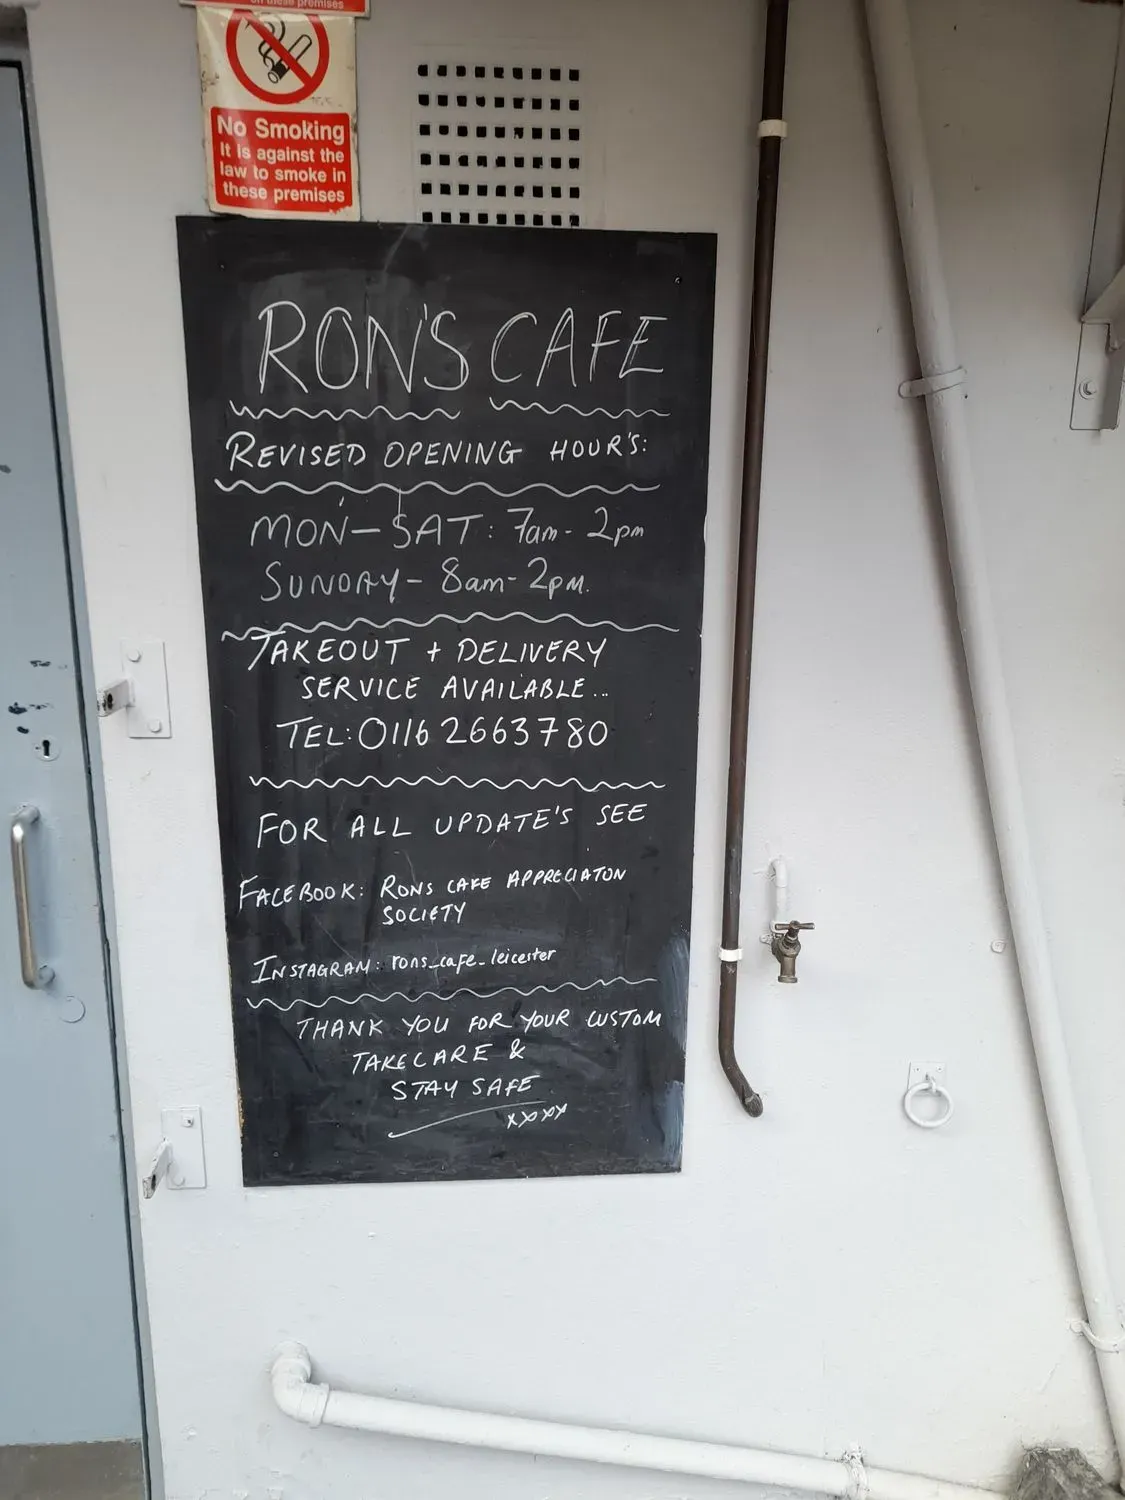 on these premises
No Smoking
It is against the
law to smoke in
these premises
RON'S CAFE
REVISED OPENING HOUR'S:
MON-SAT: 7am - 2pm
SUNDAY - 8am - 2pm.
TAKEOUT + DELIVERY
SERVICE AVAILABLE...
TEL: 0116 2663780
FOR ALL UPDATE'S SEE
FACEBOOK: RONS CAFE APPRECIATON
SOCIETY
INSTAGRAM: rons_cafe_leicester
THANK YOU FOR YOUR CUSTOM
TAKE CARE &
STAY SAFE
xxxx